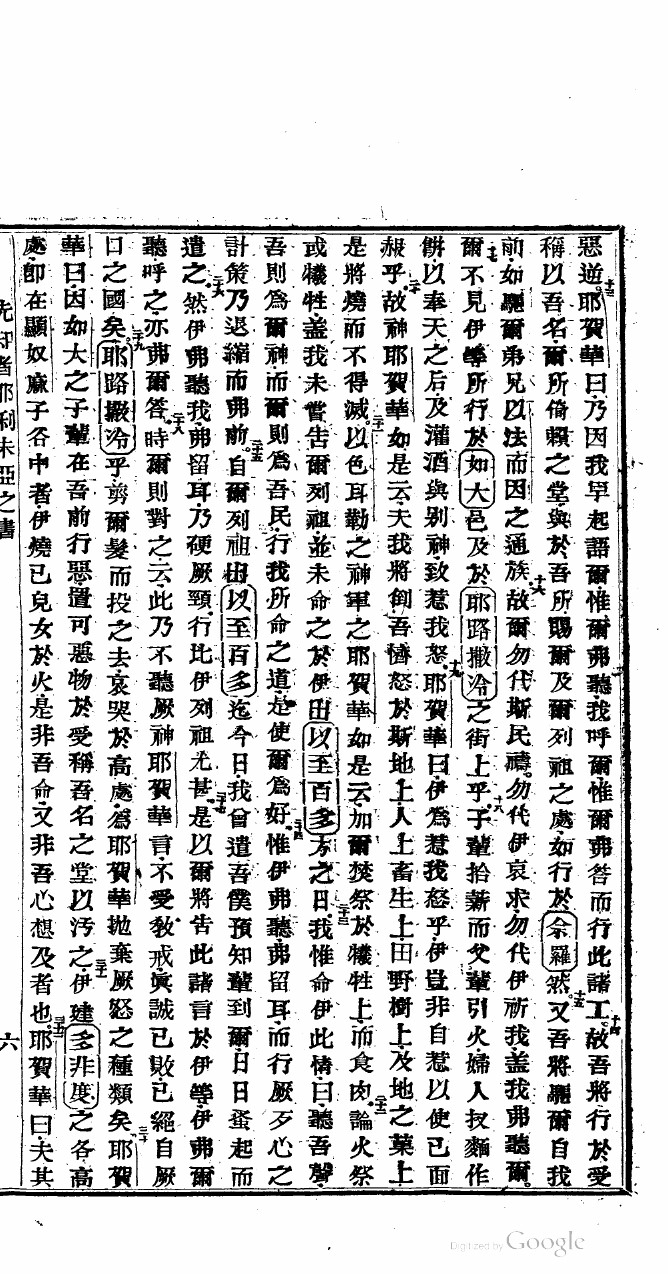 惡逆耶賀華曰乃因我早起語爾惟爾弗聽我呼爾惟爾弗答而行此諸工故吾將行於受
稱以吾名爾所倚賴之堂與於吾所賜爾及爾列祖之處如行於佘羅然又吾將驅爾自我
前如驅爾弟兄以法而因之通族故爾勿代斯民禱勿代伊哀求勿代伊祈我蓋我弗聽爾
爾不見伊等所行於如大邑及於耶路撒冷之街上乎子輩拾薪而父輩引火婦人抆麵作
餅以奉天之后及灌酒與别神致惹我怒耶賀華曰伊為惹我怒乎伊豈非自惹以使已面
赧乎故神耶賀華如是云夫我將倒吾憤怒於斯地上人上畜生上田野樹上及地之菓上
是將燒而不得滅以色耳勒之神軍之耶賀華如是云加爾焚祭於犧牲上而食肉論火祭
或犧牲蓋我未嘗告爾列祖並未命之於伊出以至百多方之日我惟命伊此情曰聽吾聲
吾則為爾神而爾則為吾民行我所命之道是使爾為好惟伊弗聽弗留耳而行厥歹心之
計策乃退縮而弗前自爾列祖出以至百多迄今日我曾遣吾僕預知輩到爾日日蚤起而
遣之然伊弗聽我弗留耳乃硬厥頸行比伊列祖尤甚是以爾將告此諸言於伊等伊弗爾
聽呼之亦弗爾答時爾則對之云此乃不聽厥神耶賀華言不受敎戒眞誠已敗已絕自厥
口之國矣耶路撒冷乎剪爾髮而投之去哀哭於高處為耶賀華拋棄厥怒之種類矣耶賀
華曰因如大之子輩在吾前行惡置可惡物於受稱吾名之堂以汚之伊建多非度之各高
處即在顯奴麻子谷中者伊燒已兒女於火是非吾命又非吾心想及者也耶賀華曰夫其
先知者耶利未亞之書
六
Digitized by Google